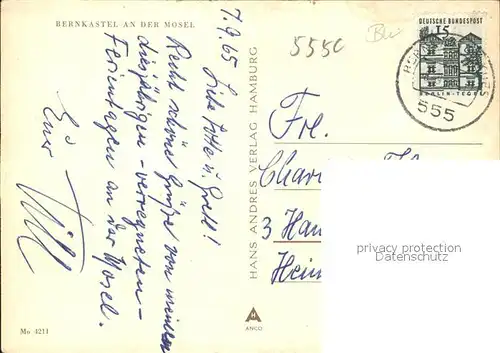 BERNKASTEL AN DER MOSEL
7.9.65
Liebe Lotte u. Gretl!
Recht schöne Grüße von meinen
diesjährigen - verregneten -
Ferientagen an der Mosel.
Euer
Till
Mo 4211
HANS ANDRES VERLAG HAMBURG
ANCO
5550
DEUTSCHE BUNDESPOST
15
BERLIN-TEGEL
555
Fre.
3 Han
Hein
privacy protection
ansichtskarten